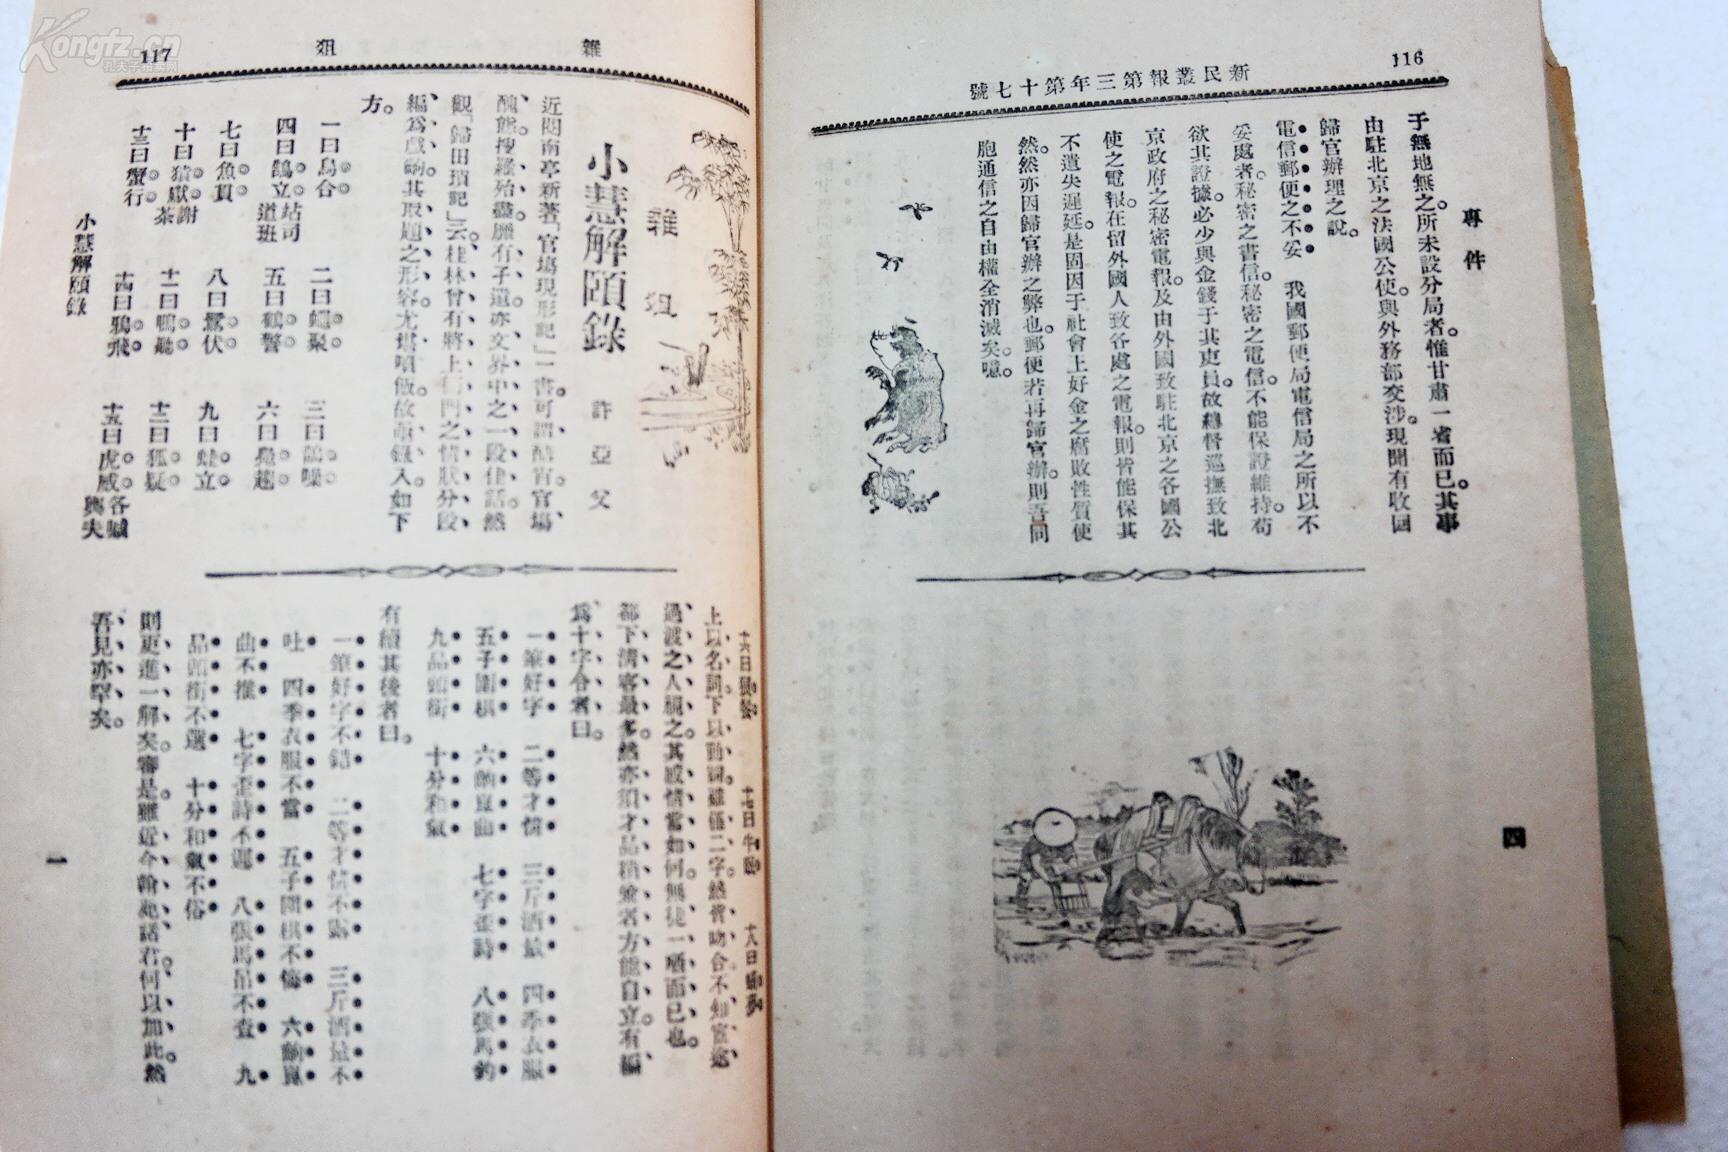 116
新民叢報第三年第十七號
專件
于無地無之。所未設分局者。惟甘肅一省而已。其事
由駐北京之法國公使。與外務部交涉。現聞有收回
歸官辦理之說。
電信郵便之不妥　我國郵便局電信局之所以不
妥處者。秘密之書信。秘密之電信。不能保證維持。苟
欲其證據。必少與金錢于其吏員。故總督巡撫致北
京政府之秘密電報。及由外國致駐北京之各國公
使之電報。在留外國人致各處之電報。則皆能保其
不遺失遲延。是固因于社會上好金之腐敗性質使
然。然亦因歸官辦之弊也。郵便若再歸官辦。則吾同
胞通信之自由權全消滅矣。噫。
四
雜俎
117
雜俎
小慧解頤錄
許亞父
近閱南亭新著「官場現形記」一書。可謂酷肖官場
醜態。搜羅殆盡。靡有孑遺。亦文界中之一段佳話。然
觀「歸田瑣記」云。桂林曾有將上衙門之情狀分段
編爲戲齣。其取題之形容。尤堪噴飯。故亟錄入如下
方。
一曰烏合　二曰蠅聚　三曰鵲噪
四曰鵠立站司道班　五曰鶴警　六曰鳧趨
七曰魚貫　八曰鷺伏　九曰蛙立
十曰猿獻謝茶　十一曰鴨聽　十二曰狐疑
十三曰蟹行　十四曰鴉飛　十五曰虎威各喊輿夫
小慧解頤錄
一
上以名詞。下以動詞。雖僅二字。然皆吻合。不知宦途
過渡之人視之。其感情當如何。無徒一哂而已也。
都下淸客最多。然亦須才品稍兼者。方能自立。有編
爲十字令者曰。
一筆好字　二等才情　三斤酒量　四季衣服
五子圍棋　六齣崑曲　七字歪詩　八張馬釣
九品頭銜　十分和氣
有續其後者曰。
一筆好字不錯　二等才情不露　三斤酒量不
吐　四季衣服不當　五子圍棋不悔　六齣崑
曲不推　七字歪詩不遲　八張馬吊不查　九
品頭銜不選　十分和氣不俗
則更進一解矣。審是。雖近今翰苑諸君。何以加此。然
吾見亦罕矣。